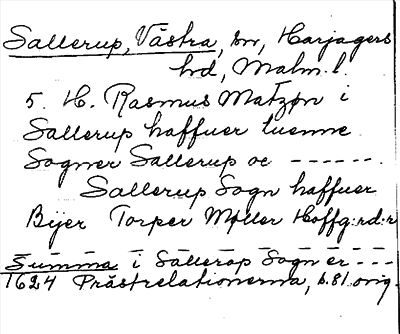 Sallerup, Västra, sn, Harjagers
hd, Malm. l.
5. H. Rasmus Matzøn i
Sallerup haffuer tuenne
Sogner Sallerup oc ------.
Sallerup Sogn haffuer
Bÿer Torper Møller Hoffg:rd:r
— — — — — — — — — —
Summa i Sallerop Sogn er ---
1624 Prästrelationerna, s. 81. orig.